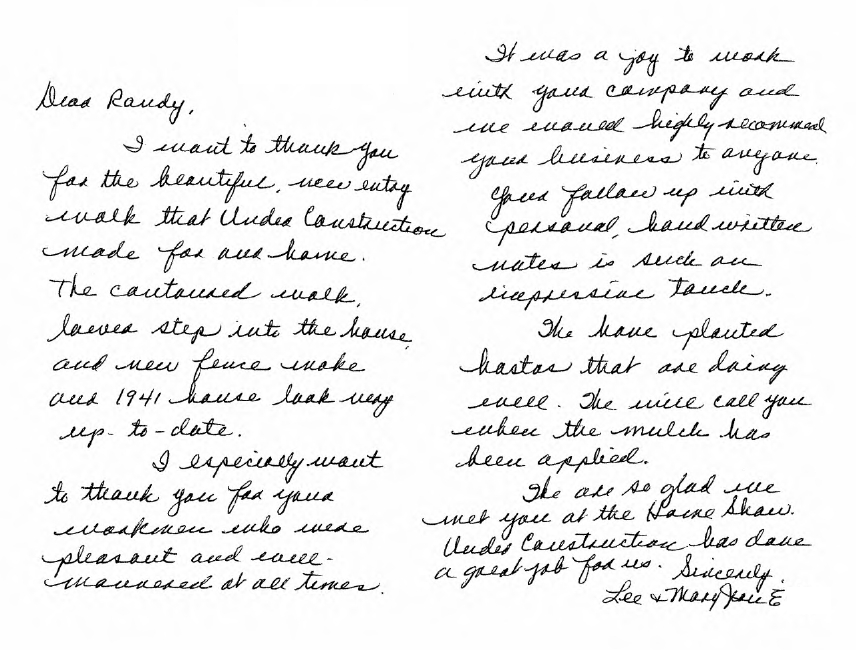 Dear Randy,
I want to thank you
for the beautiful, new entry
walk that Under Construction
made for our home.
The contoured walk,
lower step into the house,
and new fence make
our 1941 house look very
up-to-date.
I especially want
to thank you for your
workmen who were
pleasant and well-
mannered at all times.
It was a joy to work
with your company and
we would highly recommend
your business to anyone.
Your follow up with
personal, hand written
notes is such an
impressive touch.
We have planted
hostas that are doing
well. We will call you
when the mulch has
been applied.
We are so glad we
met you at the Home Show.
Under Construction has done
a great job for us. Sincerely,
Lee & Mary Jane E